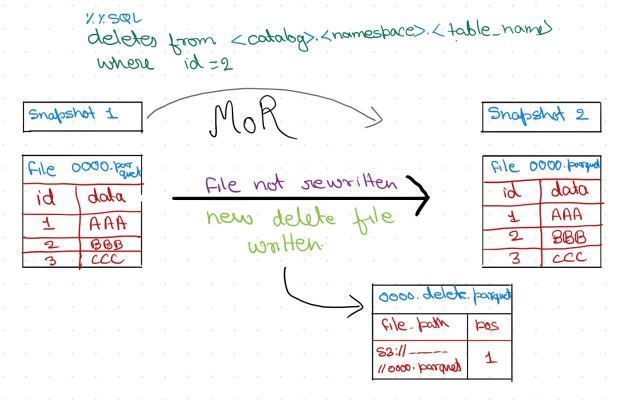 %%SQL
deletes from <catalog>.<namespace>.<table_name>
where id=2
Snapshot 1
MoR
Snapshot 2
File 0000.parquet
id data
1 AAA
2 BBB
3 CCC
File not rewritten
new delete file
written.
File 0000.parquet
id data
1 AAA
2 BBB
3 CCC
0000.delete.parquet
file_path pos
S3://------
//0000.parquet 1